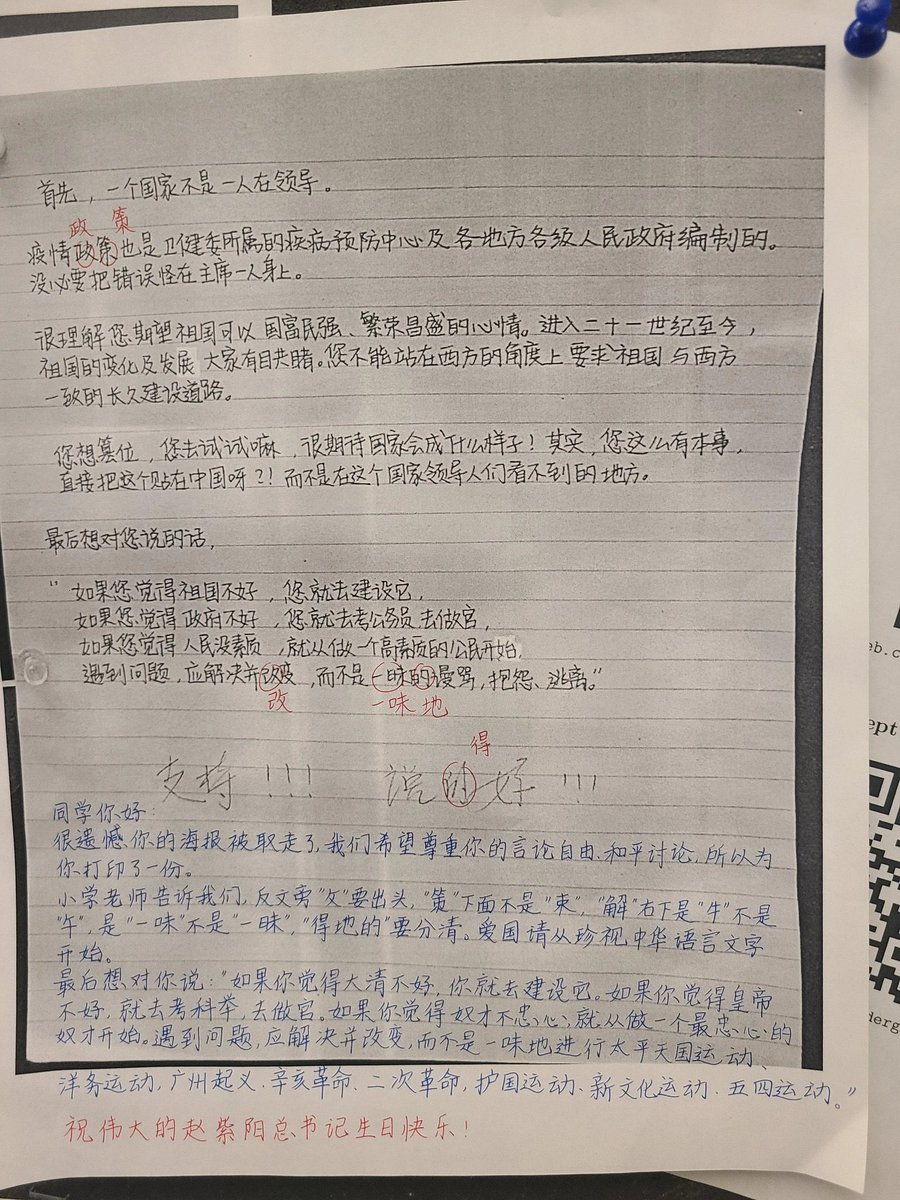 首先，一个国家不是一人在领导。
政 策
疫情政策也是卫健委所属的疾病预防中心及各地方各级人民政府编制的。
没必要把错误怪在主席一人身上。
很理解您期望祖国可以国富民强、繁荣昌盛的心情。进入二十一世纪至今，
祖国的变化及发展大家有目共睹。您不能站在西方的角度上要求祖国与西方
一致的长久建设道路。
您想篡位，您去试试嘛，很期待国家会成什么样子！其实，您这么有本事，
直接把这个贴在中国呀？！而不是在这个国家领导人们看不到的地方。
最后想对您说的话，
“如果您觉得祖国不好，您就去建设它，
如果您觉得政府不好，您就去考公务员去做官，
如果您觉得人民没素质，就从做一个高素质的公民开始，
遇到问题，应解决并改变，而不是一昧的谩骂，抱怨、逃离。”
改 一味地
得
支持！！！ 说的好！！！
同学你好：
很遗憾你的海报被取走了，我们希望尊重你的言论自由、和平讨论，所以为
你打印了一份。
小学老师告诉我们，反文旁“攵”要出头，“策”下面不是“束”，“解”右下是“牛”不是
“午”，是“一味”不是“一昧”，“得地的”要分清。爱国请从珍视中华语言文字
开始。
最后想对你说：“如果你觉得大清不好，你就去建设它。如果你觉得皇帝
不好，就去考科举，去做官。如果你觉得奴才不忠心，就从做一个最忠心的
奴才开始。遇到问题，应解决并改变，而不是一味地进行太平天国运动、
洋务运动，广州起义、辛亥革命、二次革命，护国运动、新文化运动、五四运动。”
祝伟大的赵紫阳总书记生日快乐！
eb.c
ept
derg